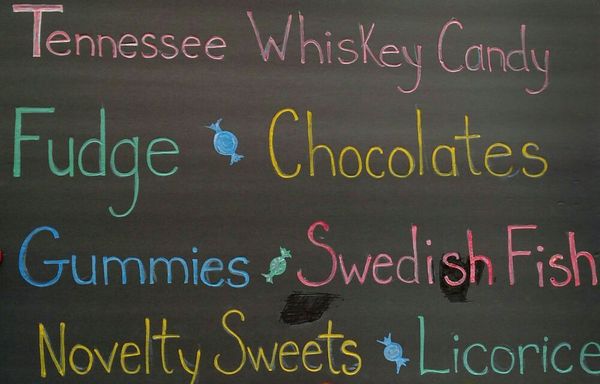 Tennessee Whiskey Candy
Fudge Chocolates
Gummies Swedish Fish
Novelty Sweets Licorice